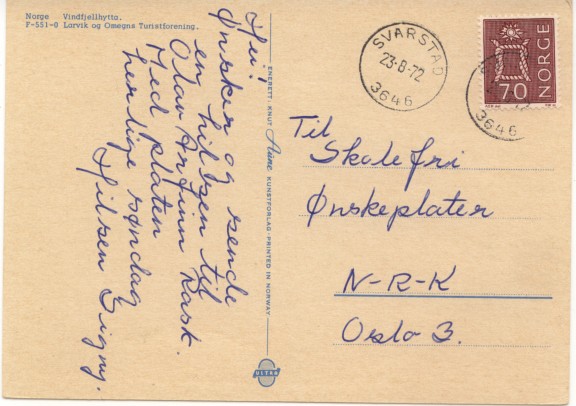 Norge Vindfjellhytta.
F-551-0 Larvik og Omegns Turistforening.
Hei!
Ønsker og sende
en hilsen til
Olav Arfinn Kask.
Med platen
herlige søndag
Hilsen Signy.
ENERETT · KNUT Aune KUNSTFORLAG · PRINTED IN NORWAY
ULTRA
SVARSTAD
23-8-72
3646
NORGE
70
3646
Til
Skolefri
Ønskeplater
N-R-K
Oslo 3.